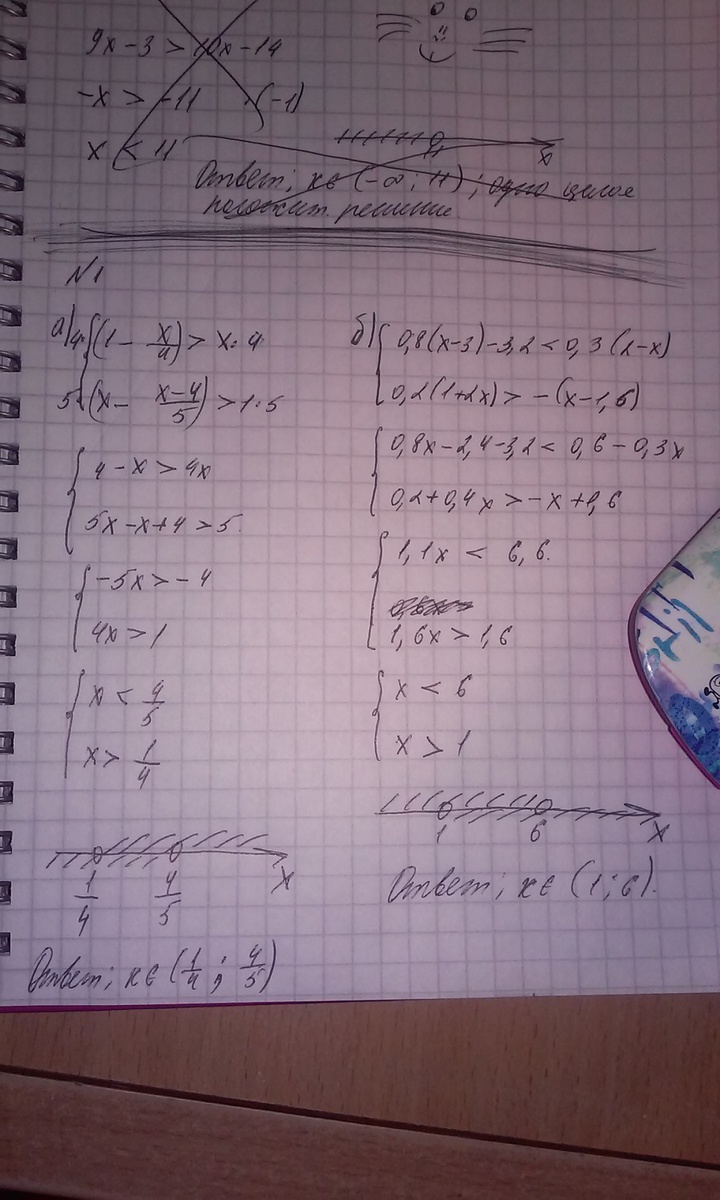 9x-3 > 10x-14
-x > -11 (-1)
x < 11
11 x
Ответ; x∈ (-∞; 11); одно целое
положит. решение
№1
а) 4·(1 - x/4) > x·4
5·(x - (x-4)/5) > 1·5
4-x > 4x
5x-x+4 > 5
-5x > -4
4x > 1
x < 4/5
x > 1/4
1/4 4/5 x
Ответ; x∈ (1/4; 4/5)
б) 0,8(x-3)-3,2 < 0,3(2-x)
0,2(1+2x) > -(x-1,6)
0,8x-2,4-3,2 < 0,6-0,3x
0,2+0,4x > -x+1,6
1,1x < 6,6.
1,6x > 1,6
x < 6
x > 1
1 6 x
Ответ; x∈ (1; 6).